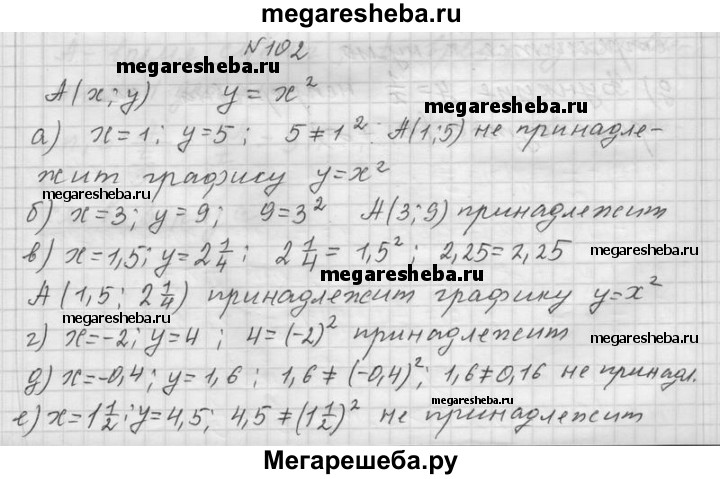 megaresheba.ru
№102
megaresheba.ru
А(x; y) y = x²
megaresheba.ru
а) x=1; y=5; 5≠1² А(1;5) не принадле-
жит графику y=x²
megaresheba.ru
megaresheba.ru
б) x=3; y=9; 9=3² А(3;9) принадлежит
в) x=1,5; y=2 1/4; 2 1/4 = 1,5²; 2,25=2,25
megaresheba.ru
megaresheba.ru
А(1,5; 2 1/4) принадлежит графику y=x²
megaresheba.ru
г) x=-2; y=4; 4=(-2)² принадлежит
megaresheba.ru
д) x=-0,4; y=1,6; 1,6≠(-0,4)²; 1,6≠0,16 не принадл.
megaresheba.ru
е) x=1 1/2; y=4,5; 4,5≠(1 1/2)² не принадлежит
megaresheba.ru
Мегарешеба.ру